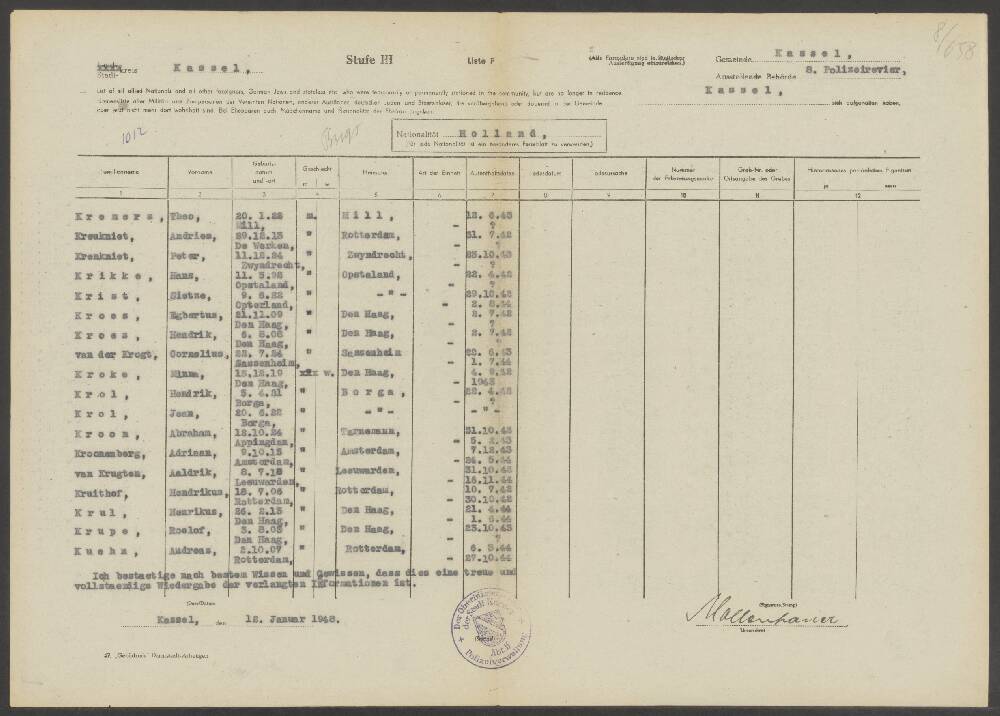 8/658
xxxx Kreis
Stadt-
Kassel,
Stufe III
Liste F
Gemeinde Kassel,
Ausstellende Behörde 8. Polizeirevier,
Kassel,
List of all allied Nationals and all other foreigners, German Jews and stateless etc. who were temporarily or permanently stationed in the community, but are no longer in residence.
sich aufgehalten haben,
1012
Nationalität Holland,
(für jede Nationalität ist ein besonderes Formblatt zu verwenden)
Familienname Vorname Geburtsdatum und -ort Geschlecht m w Heimatort Art der Einheit Aufenthaltsdaten Todesdatum Todesursache Nummer der Erkennungsmarke Grab-Nr. oder Ortsangabe des Grabes Hinterlassenes persönliches Eigentum
1 2 3 4 5 6 7 8 9 10 11 12
Kremers, Theo, 20. 1.28 m. Mill, 12. 6.43
Mill, - ?
Kreukniet, Andries, 29.12.15 " Rotterdam, 31. 7.42
De Werken, - ?
Kreukniet, Peter, 11.12.24 " Zwyndrecht, 23.10.43
Zwyndrecht, - ?
Krikke, Hans, 11. 5.98 " Opstaland, 22. 4.42
Opstaland, - ?
Krist, Sietze, 9. 6.22 " - " - 29.10.43
Opterland, - 2. 8.44
Kroes, Egbertus, 21.11.09 " Den Haag, 2. 7.42
Den Haag, - ?
Kroes, Hendrik, 6. 8.08 " Den Haag, 2. 7.42
Den Haag, - ?
van der Krogt, Cornelius, 23. 7.24 " Sassenheim 25. 6.43
Sassenheim, - 1. 7.44
Kroke, Minna, 15.12.19 xxx w. Den Haag, 4. 9.42
Den Haag, - 1943
Krol, Hendrik, 5. 4.21 " Borga, 22. 4.42
Borga, - ?
Krol, Jean, 20. 6.22 " - " - - " -
Borga,
Kroon, Abraham, 12.10.24 " Ternemunn, 31.10.43
Appingdam, - 5. 2.43
Kroonenberg, Adrian, 9.10.15 " Amsterdam, 7.12.43
Amsterdam, - 24. 5.44
van Krugten, Aaldrik, 8. 7.18 " Leeuwarden, 31.10.43
Leeuwarden, - 15.11.44
Kruithof, Hendrikus, 18. 7.06 " Rotterdam, 10. 7.42
Rotterdam, - 30.10.42
Krul, Henrikus, 26. 2.13 " Den Haag, 21. 4.44
Den Haag, - 1. 6.44
Krupe, Roelof, 3. 8.05 " Den Haag, 23.10.43
Den Haag, - ?
Kuehn, Andreas, 2.10.07 " Rotterdam, 6. 3.44
Rotterdam, - 27.10.44
Ich bestaetige nach bestem Wissen und Gewissen, dass dies eine treue und
vollstaendige Wiedergabe der verlangten Informationen ist.
(Ort/Datum)
Kassel, den 12. Januar 1948.
Der Oberbürgermeister der Stadt Kassel
Abt. II
Polizeiverwaltung
(Signature, Stamp)
Mollenhauer